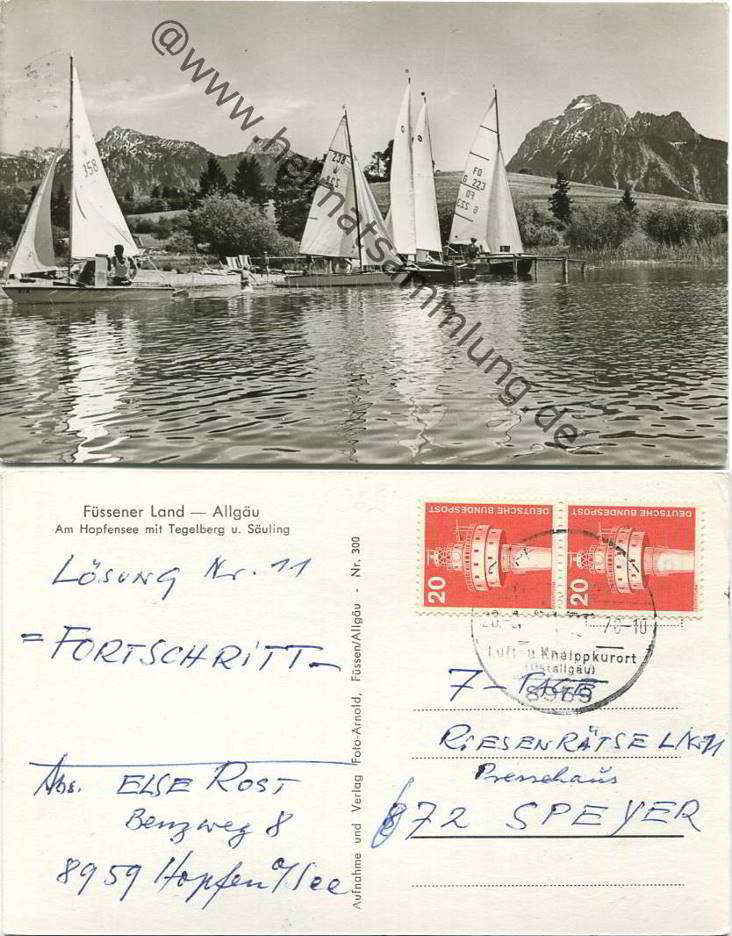 @www.heimatsammlung.de
358
238
FD
G 223
FD
G 223
Füssener Land — Allgäu
Am Hopfensee mit Tegelberg u. Säuling
LÖSUNG Nr. 11
= FORTSCHRITT -
Abs. ELSE ROST
Benzweg 8
8959 Hopfen a/See
Aufnahme und Verlag Foto-Arnold, Füssen/Allgäu - Nr. 300
DEUTSCHE BUNDESPOST
20
DEUTSCHE BUNDESPOST
20
Luft- u Kneippkurort
(Ostallgäu)
8959
7 - TAGE
RIESENRÄTSEL Nr. 11
Pressehaus
672 SPEYER